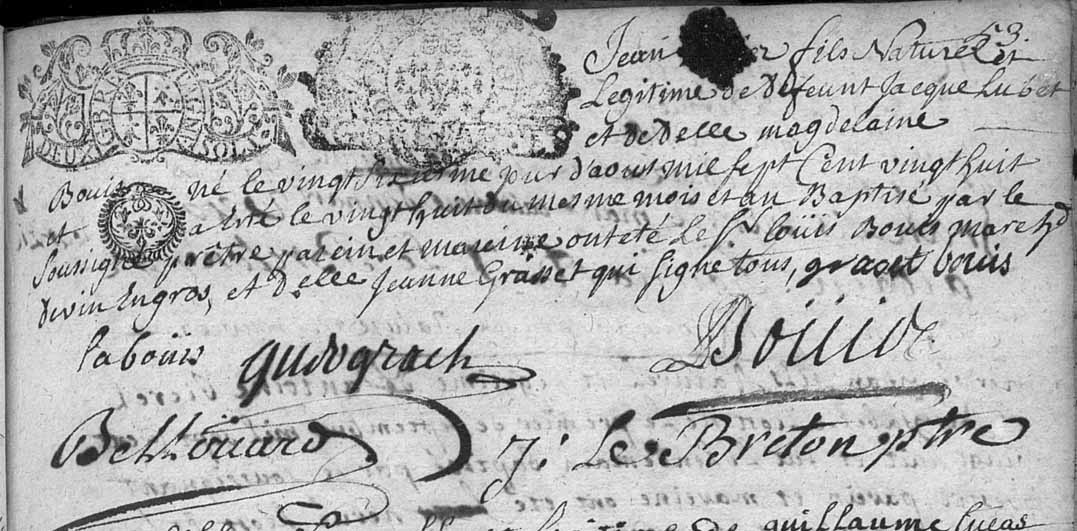 53
Jean fils Naturel et
Legitime de defeunt Jacque Lubet
et de delle magdelaine
DEUX SOLS
Bouis né le vingt sixieme jour d'aoust mil sept Cent vingt huit
et a Eté le vingt huit du mesme mois et an Baptisé par le
soussigné prêtre parein et mareine ont eté Le Sr loüis Bouis march^d
de vin En gros, et delle Jeanne Grasset qui signe tous, graset bouis
la bouis
Boüis
Bellouard
J: Le Breton ptre
et legitime de guillaume Lucas